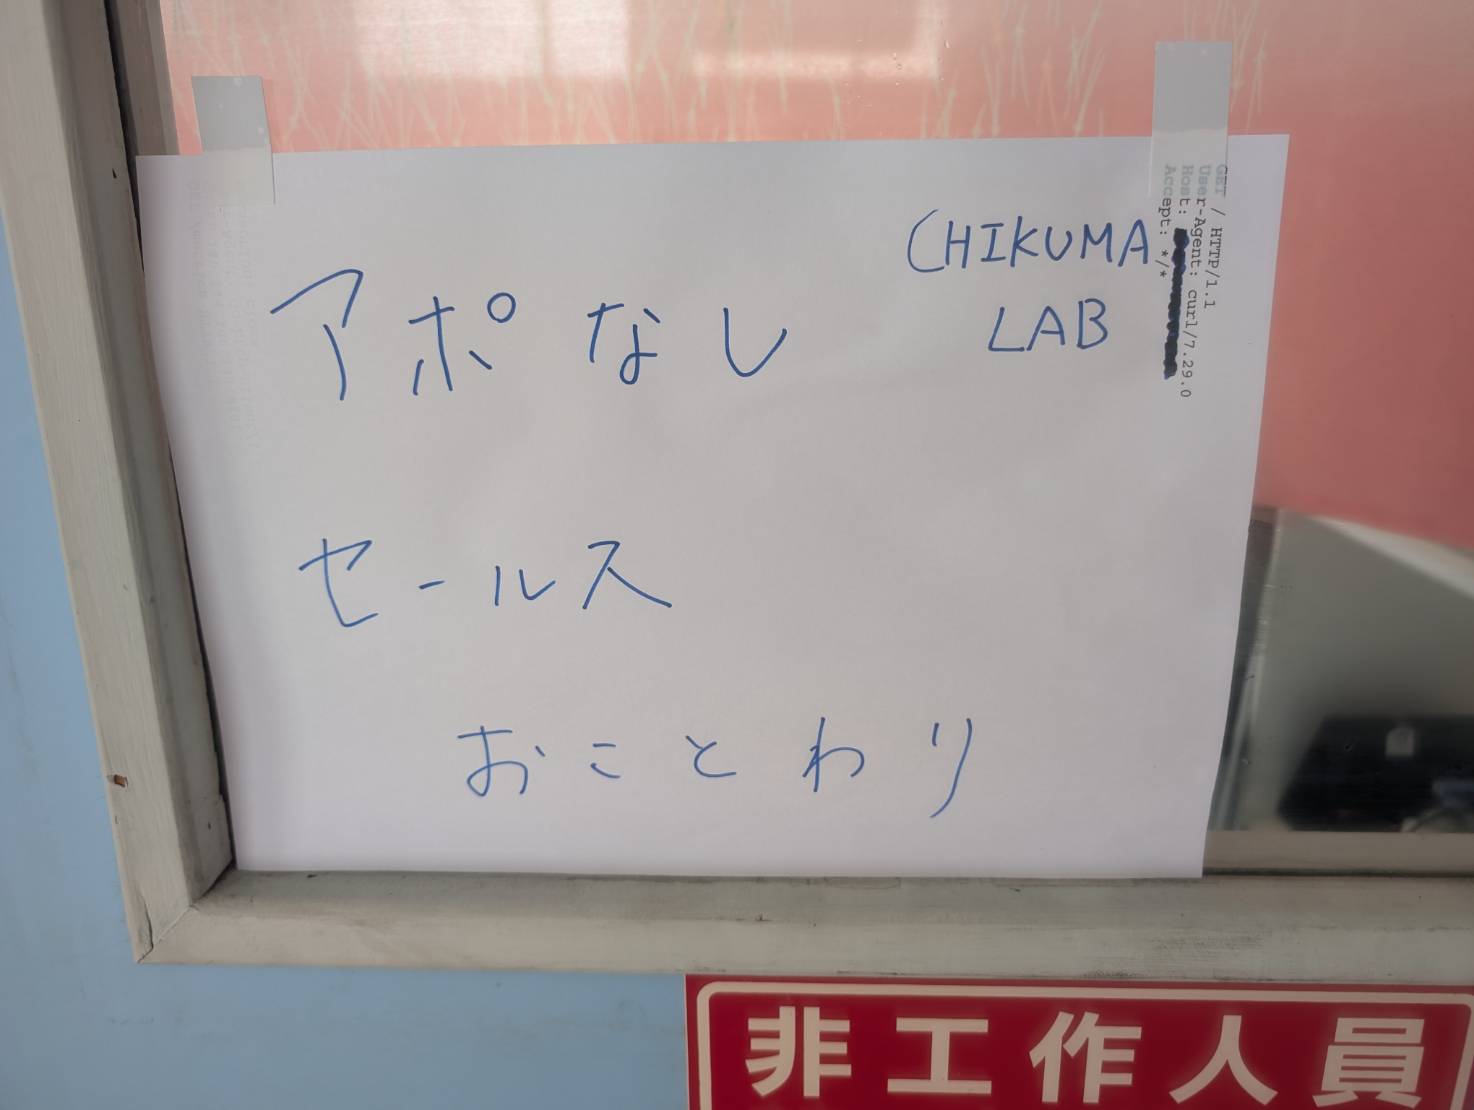 CHIKUMA
LAB
アポなし
セールス
おことわり
GET / HTTP/1.1
User-Agent: curl/7.29.0
Host:
Accept: */*
非工作人員